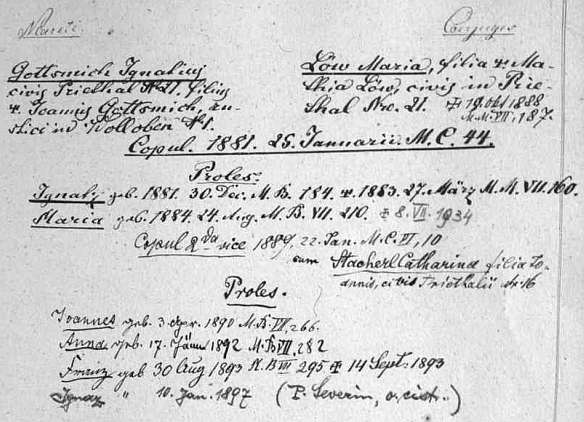 Mariti. Conjuges
Gottsmich Ignatius
civis Priethal № 21. filius
Joannis Gottsmich, ru-
stici in Kolloben № 1.
Löw Maria, filia Ma-
thia Löw, civis in Prie-
thal Nro. 21. ‡ 19. Okt 1888
M. M. VII, 187.
Copul. 1881. 25. Januarii. M. C. 44.
Proles:
Ignatz geb. 1881. 30. Dec. M. B. 184. 1883. 27. März M. M. VII. 160.
Maria geb. 1884. 24. Aug. M. B. VII. 210. ‡ 8. VII. 1934
Copul 2da vice 1889. 22. Jan. M. C. VI, 10
cum Stacherl Catharina filia Jo-
annis, civis Priethalii № 16
Proles.
Joannes geb. 3 Apr. 1890 M. B. VII, 266.
Anna geb. 17. Jänn 1892 M. B. VII, 282
Franz geb 30 Aug 1893 M. B. VII 295 ‡ 14 Sept. 1893
Ignaz " 10. Jan. 1897 (P. Severin, o. cist.)